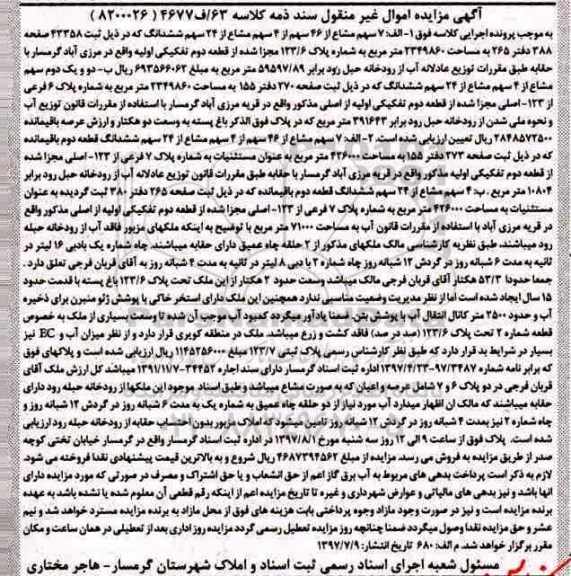 آگهی مزایده اموال غیر منقول سند ذمه کلاسه ۶۳/ف/۴۶۷۷ ( ۸۲۰۰۰۲۶ )
به موجب پرونده اجرایی کلاسه فوق ۱- الف: ۷ سهم مشاع از ۴۶ سهم از ۴ سهم مشاع از ۲۴ سهم ششدانگ که در ذیل ثبت ۴۳۳۵۸ صفحه
۳۸۸ دفتر ۲۶۵ به مساحت ۲۳۴۹۸۶۰ متر مربع به شماره پلاک ۱۲۳/۶ مجزا شده از قطعه دوم تفکیکی اولیه واقع در مرزی آباد گرمسار با
حقابه طبق مقررات توزیع عادلانه آب از رودخانه حبل رود برابر ۵۹۵۹۷/۸۹ متر مربع به مبلغ ۶۹۳۵۶۶۰۶۲ ریال ب- دو و یک دوم سهم
مشاع از ۴ سهم مشاع از ۲۴ سهم ششدانگ که در ذیل ثبت صفحه ۲۷۰ دفتر ۱۵۵ به مساحت ۲۳۴۹۸۶۰ متر مربع به شماره پلاک ۶ فرعی
از ۱۲۳- اصلی مجزا شده از قطعه دوم تفکیکی اولیه از اصلی مذکور واقع در قریه مرزی آباد گرمسار با استفاده از مقررات قانون توزیع آب
و نحوه ملی شدن از رودخانه حبل رود برابر ۳۹۱۶۴۳ متر مربع که در پلاک فوق الذکر باغ پسته به وسعت دو هکتار و ارزش عرصه باقیمانده
۲۸۴۸۵۷۲۵۰۰ ریال تعیین ارزیابی شده است. ۲- الف: ۷ سهم مشاع از ۴۶ سهم از ۴ سهم مشاع از ۲۴ سهم ششدانگ قطعه دوم باقیمانده
که در ذیل ثبت صفحه ۲۷۳ دفتر ۱۵۵ به مساحت ۴۲۶۰۰۰ متر مربع به عنوان مستثنیات به شماره پلاک ۷ فرعی از ۱۲۳- اصلی مجزا شده
از قطعه دوم تفکیکی اولیه مذکور واقع در قریه مرزی آباد گرمسار با حقابه طبق مقررات قانون توزیع عادلانه آب از رودخانه حبل رود برابر
۱۰۸۰۴ متر مربع . ب: ۴ سهم مشاع از ۲۴ سهم ششدانگ قطعه دوم باقیمانده که در ذیل ثبت صفحه ۲۶۵ دفتر ۳۸۰ ثبت گردیده به عنوان
مستثنیات به مساحت ۴۲۶۰۰۰ متر مربع به شماره پلاک ۷ فرعی از ۱۲۳- اصلی مجزا شده از قطعه دوم تفکیکی اولیه از اصلی مذکور واقع
در قریه مرزی آباد با استفاده از مقررات قانون آب به مساحت ۷۱۰۰۰ متر مربع با توضیح به اینکه ملکهای مزبور فاقد آب از رودخانه حبله
رود میباشند، طبق نظریه کارشناسی مالک ملکهای مذکور از ۲ حلقه چاه عمیق دارای حقابه میباشند. چاه شماره یک بادبی ۱۶ لیتر در
ثانیه به مدت ۶ شبانه روز در گردش ۱۲ شبانه روز چاه شماره ۲ با دبی ۸ لیتر در ثانیه به مدت ۴ شبانه روز به آقای قربان فرجی تعلق دارد.
جمعا حدودا ۵۳/۳ هکتار آقای قربان فرجی مالک میباشد وسعت حدود ۲ هکتار از این ملک تحت پلاک ۱۲۳/۶ باغ پسته با قدمت حدود
۱۵ سال ایجاد شده است اما از نظر مدیریت وضعیت مناسبی ندارد همچنین این ملک دارای استخر خاکی با پوشش ژئو ممبرن برای ذخیره
آب و حدود ۲۵۰۰ متر کانال انتقال آب با پوشش بتن. ضمنا یادآور میگردد کمبود آب موجب آن شده تا وسعت بسیاری از ملک به خصوص
قطعه شماره ۲ تحت پلاک ۱۲۳/۶ (صد در صد) فاقد کشت و زرع میباشد. ملک در منطقه کویری قرار دارد و از نظر میزان آب و EC نیز
بسیار در شرایط بد قرار دارد که طبق نظر کارشناس رسمی پلاک ثبتی ۱۲۳/۷ مبلغ ۱۱۴۵۲۵۶۰۰۰ ریال ارزیابی شده است و پلاکهای فوق
که برابر نامه شماره ۹۷/۳۴۸۷-۱۳۹۷/۴/۲۳ اداره ثبت اسناد گرمسار دارای سند اجاره ۳۴۴۵۲-۱۳۹۱/۱۱/۷ میباشد کل ارزش ملک آقای
قربان فرجی در دو پلاک ۶ و ۷ شامل عرصه و اعیان که به صورت مشاع میباشد و طبق اسناد موجود این ملکها از رودخانه حبله رود دارای
حقابه میباشند که مالک ان اظهار میدارد آب مورد نیاز از دو حلقه چاه عمیق به شماره یک به مدت ۶ شبانه روز در گردش ۱۲ شبانه روز و
چاه شماره ۲ نیز بمدت ۴ شبانه روز در گردش ۱۲ شبانه روز تامین میشود که املاک مزبور بدون احتساب حقابه از رودخانه حبله رود ارزیابی
شده است. پلاک فوق از ساعت ۹ الی ۱۲ روز سه شنبه مورخ ۱۳۹۷/۸/۱ در اداره ثبت اسناد گرمسار واقع در گرمسار خیابان تختی کوچه
صدر از طریق مزایده به فروش می رسد. مزایده از مبلغ ۴۶۸۷۳۹۴۵۶۲ ریال شروع و به بالاترین قیمت پیشنهادی نقدا فروخته می شود.
لازم به ذکر است پرداخت بدهی های مربوط به آب برق گاز اعم از حق انشعاب و یا حق اشتراک و مصرف در صورتی که مورد مزایده دارای
انها باشد و نیز بدهی های مالیاتی و عوارض شهرداری و غیره تا تاریخ مزایده اعم از اینکه رقم قطعی آن معلوم شده یا نشده باشد به عهده
برنده مزایده است و نیز در صورت وجود مازاد وجوه پرداختی بابت هزینه های فوق از محل مازاد به برنده مزایده مسترد خواهد شد و نیم
عشر و حق مزایده نقدا وصول میگردد ضمنا چنانچه روز مزایده تعطیل رسمی گردد مزایده روز اداری بعد از تعطیلی در همان ساعت و مکان
مقرر برگزار خواهد شد. م الف: ۶۸۰ تاریخ انتشار: ۱۳۹۷/۷/۹
مسئول شعبه اجرای اسناد رسمی ثبت اسناد و املاک شهرستان گرمسار- هاجر مختاری